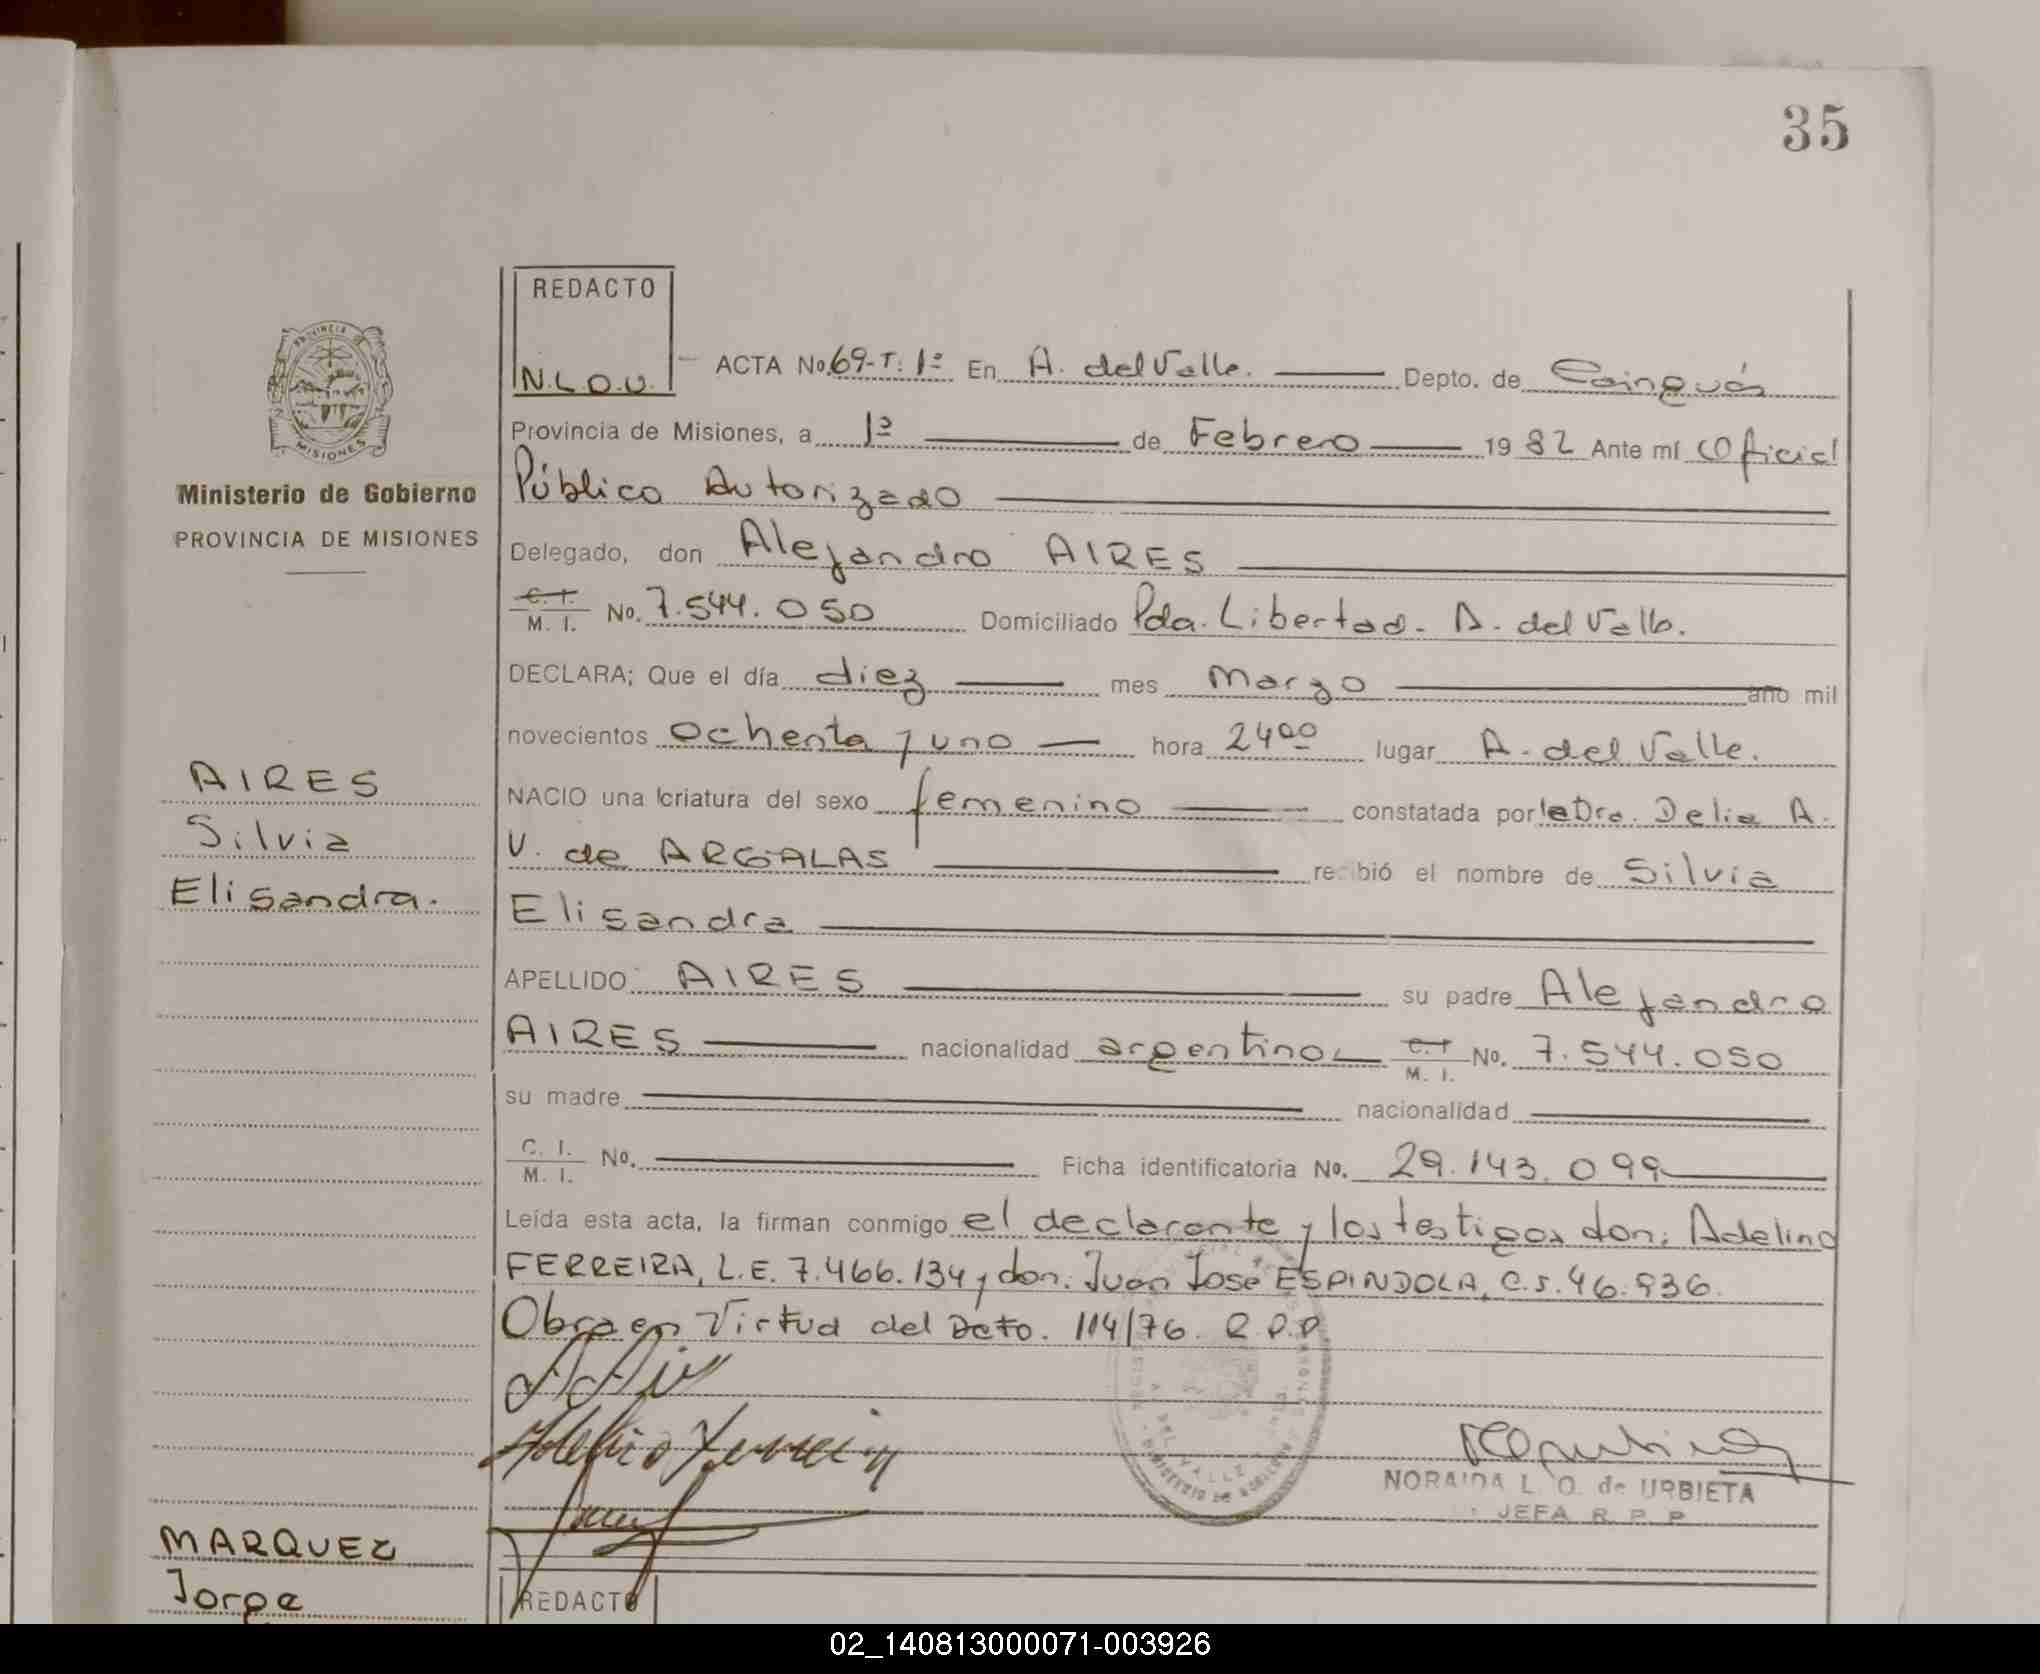 35
REDACTO
N.L.O.U.
ACTA No. 69-T: 1º En A. del Valle. Depto. de Cainguás
Provincia de Misiones, a 1º de Febrero 1982 Ante mí Oficial
Público Autorizado
Delegado, don Alejandro AIRES
C. I.
M. I. No. 7.544.050 Domiciliado Pda. Libertad. A. del Valle.
DECLARA; Que el día diez mes Marzo año mil
novecientos ochenta y uno hora 24⁰⁰ lugar A. del Valle.
NACIO una criatura del sexo femenino constatada por la Dra. Delia A.
V. de ARGALAS recibió el nombre de Silvia
Elisandra
APELLIDO AIRES su padre Alejandro
AIRES nacionalidad argentino C. I. M. I. No. 7.544.050
su madre nacionalidad
C. I.
M. I. No. Ficha identificatoria No. 29.143.099
Leída esta acta, la firman conmigo el declarante y los testigos don: Adelino
FERREIRA, L.E. 7.466.134 y don: Juan José ESPINDOLA, C.S. 46.936.
Obra en Virtud del Dcto. 114/76. R.P.P
Adelino Ferreira
NORAIDA L. O. de URBIETA
JEFA R. P. P
REDACTO
PROVINCIA
MISIONES
Ministerio de Gobierno
PROVINCIA DE MISIONES
AIRES
Silvia
Elisandra.
MARQUEZ
Jorge
02_140813000071-003926